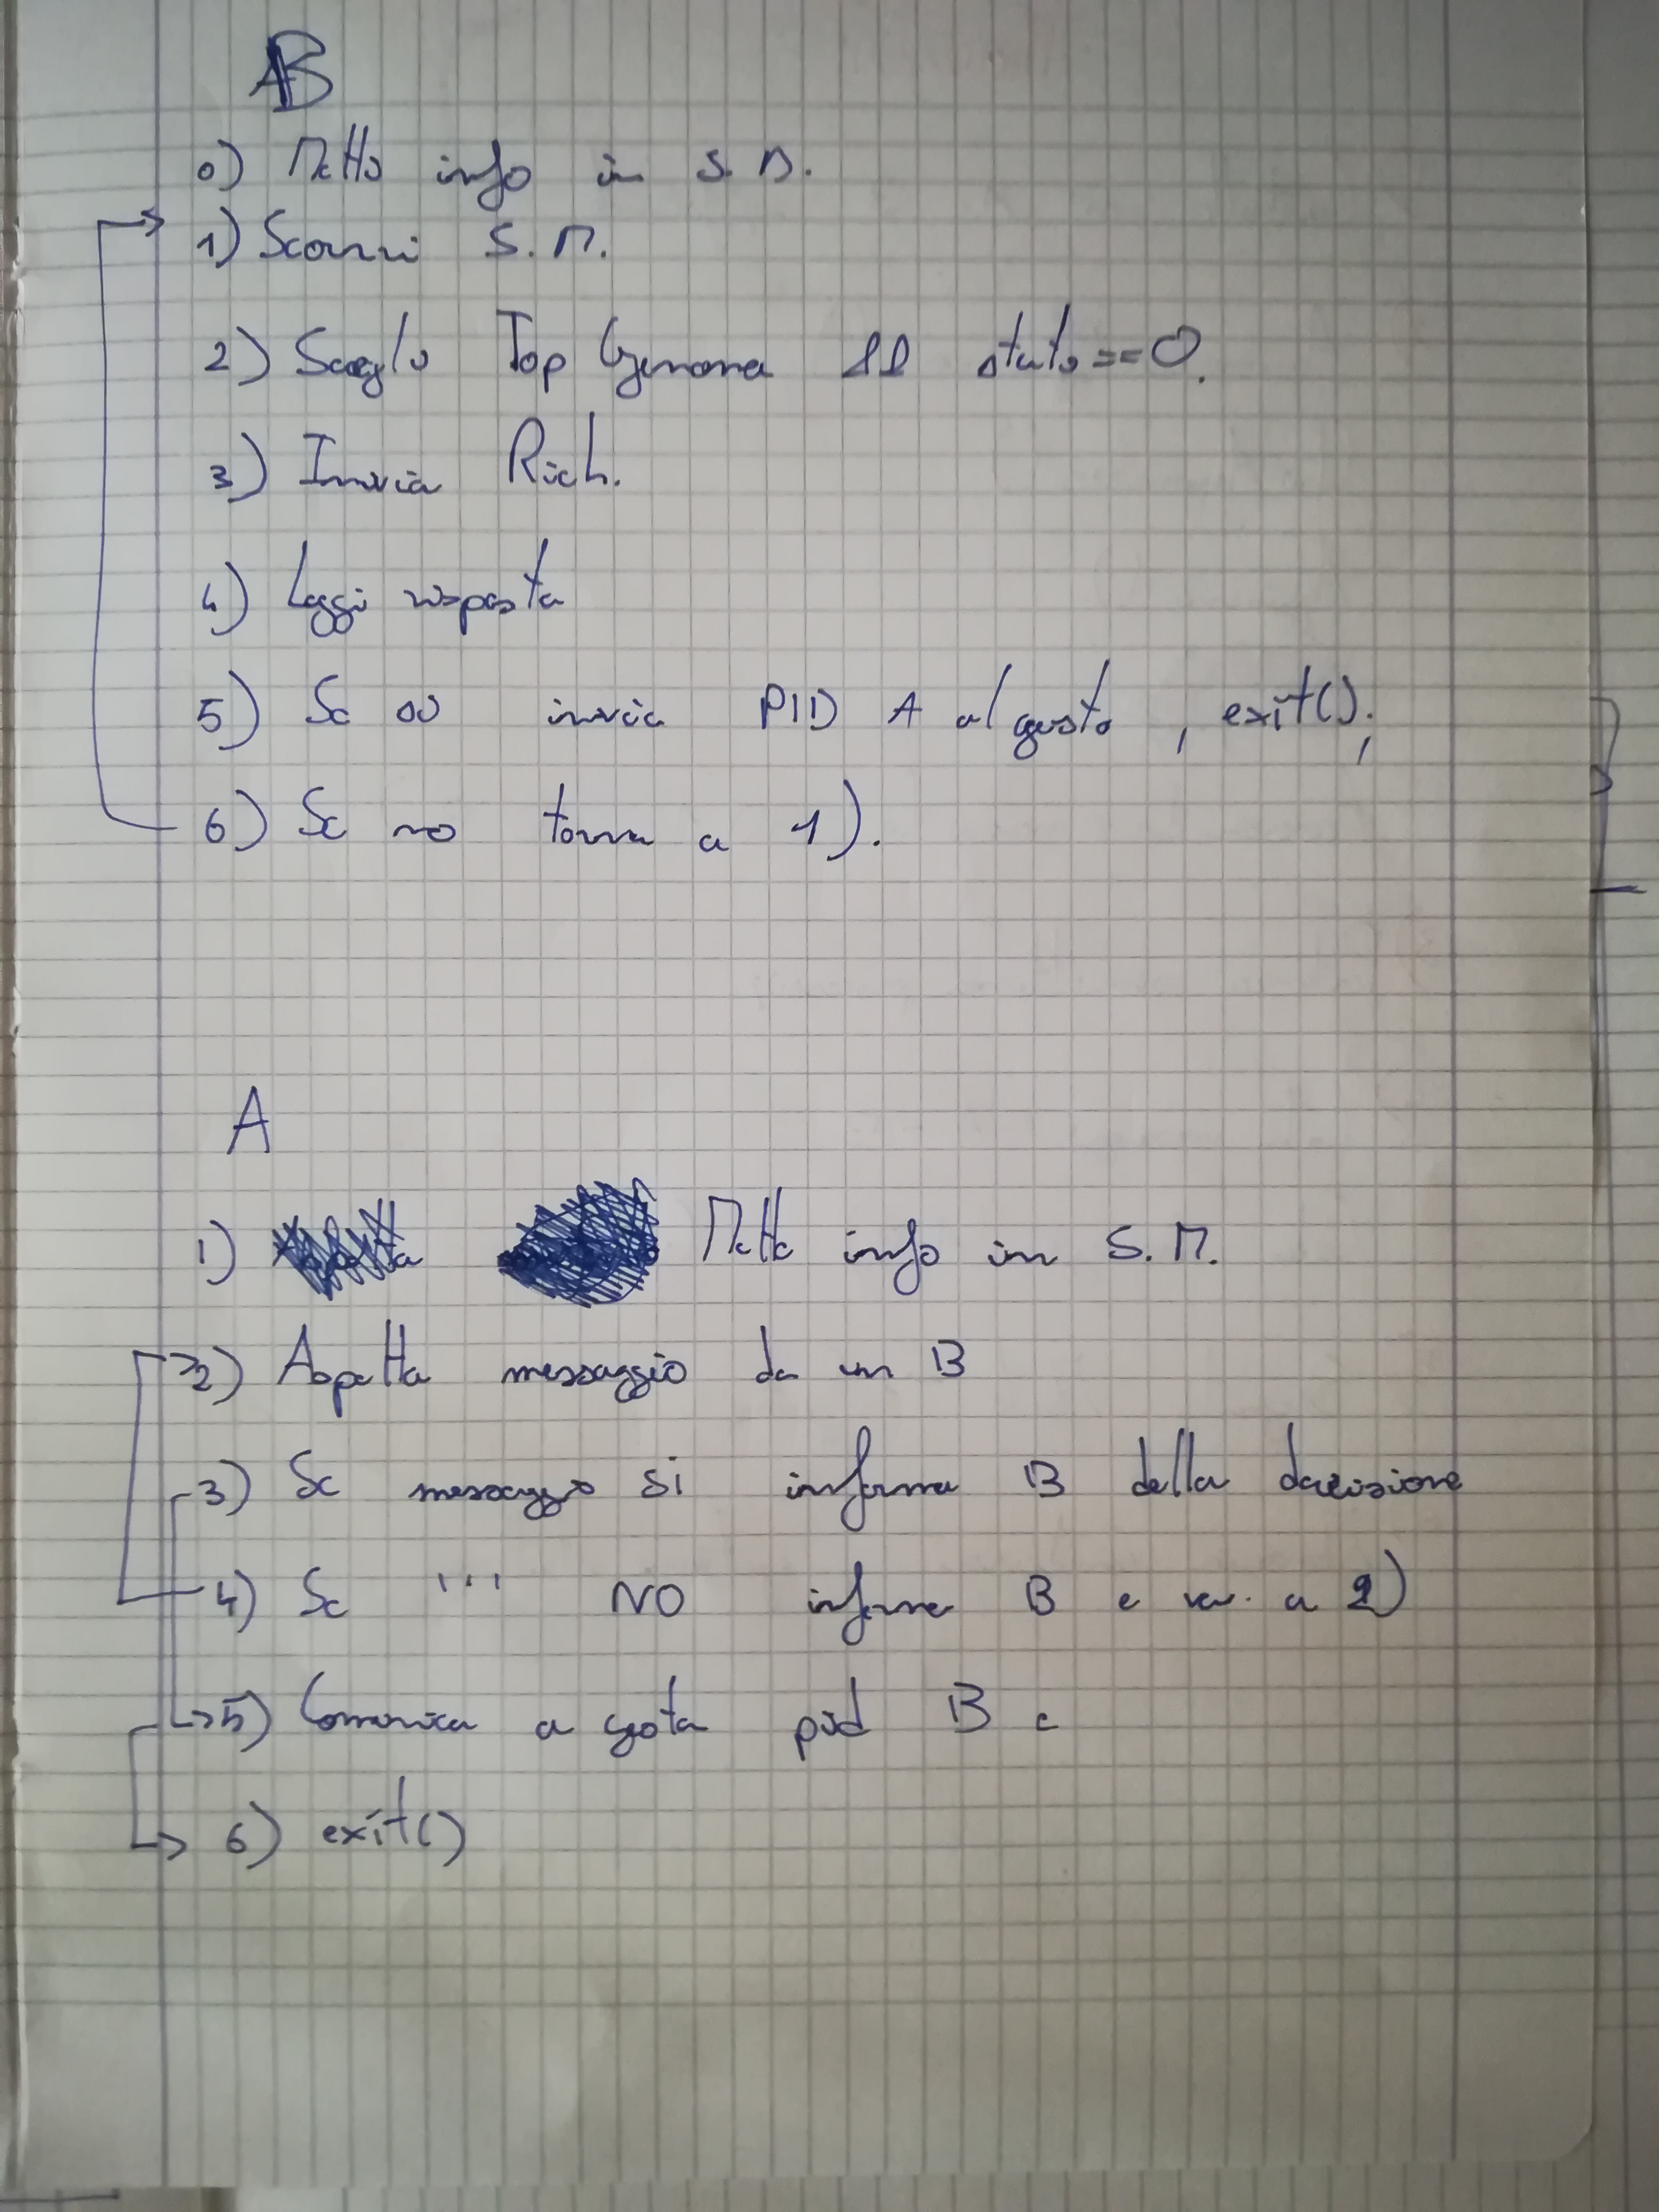 B
0) Metto info in S.M.
1) Scorri S.M.
2) Sceglo Top Genoma && stato==0.
3) Invia Rich.
4) Leggi risposta
5) Se invia PID A al gesto, exit();
6) Se no torna a 1).
A
1) Mette info in S.M.
2) Aspetta messaggio da un B
3) Se messaggio si informa B della decisione
4) Se ''' NO informa B e va a 2)
5) Comunica a gesto pid B e
6) exit()